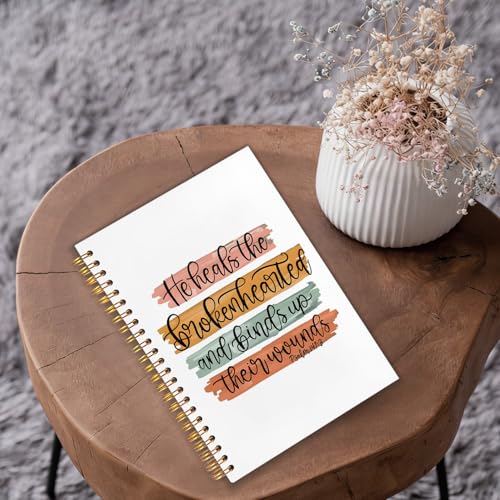 He heals the
brokenhearted
and binds up
their wounds
Psalm 147:3